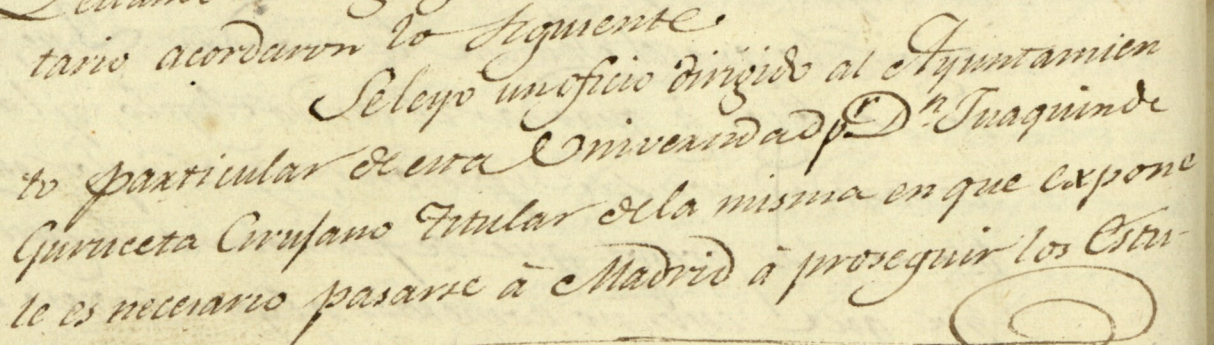 tario acordaron lo siguiente.
Se leyo un oficio dirigido al Ayuntamien
to particular de esta Universidad pr. Dn. Juaquin de
Guruceta Cirujano Titular de la misma en que expone
le es necesario pasarse à Madrid à proseguir los Estu-